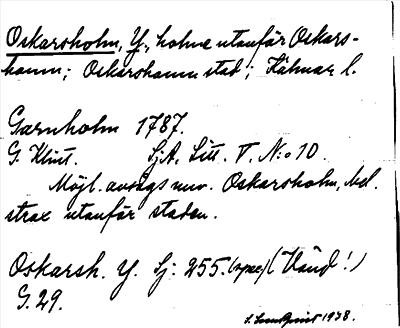 Oskarsholm, Y., holme utanför Oskars-
hamn; Oskarshamn stad; Kalmar l.
Garnholm 1787.
G. Klint. SjA. Litt. V. N:o 10.
Möjl. avsågs nuv. Oskarsholm, bel.
strax utanför staden.
Oskarsh. Y. Sj: 255. (Vänd!)
G. 29.
1938.